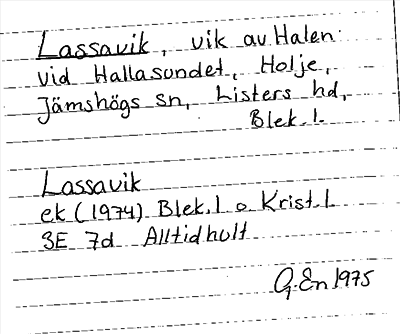 Lassavik, vik av Halen
vid Hallasundet, Holje,
Jämshögs sn, Listers hd,
Blek. l.
Lassavik
ek (1974) Blek. l o Krist. l
3E 7d Alltidhult
G. En 1975